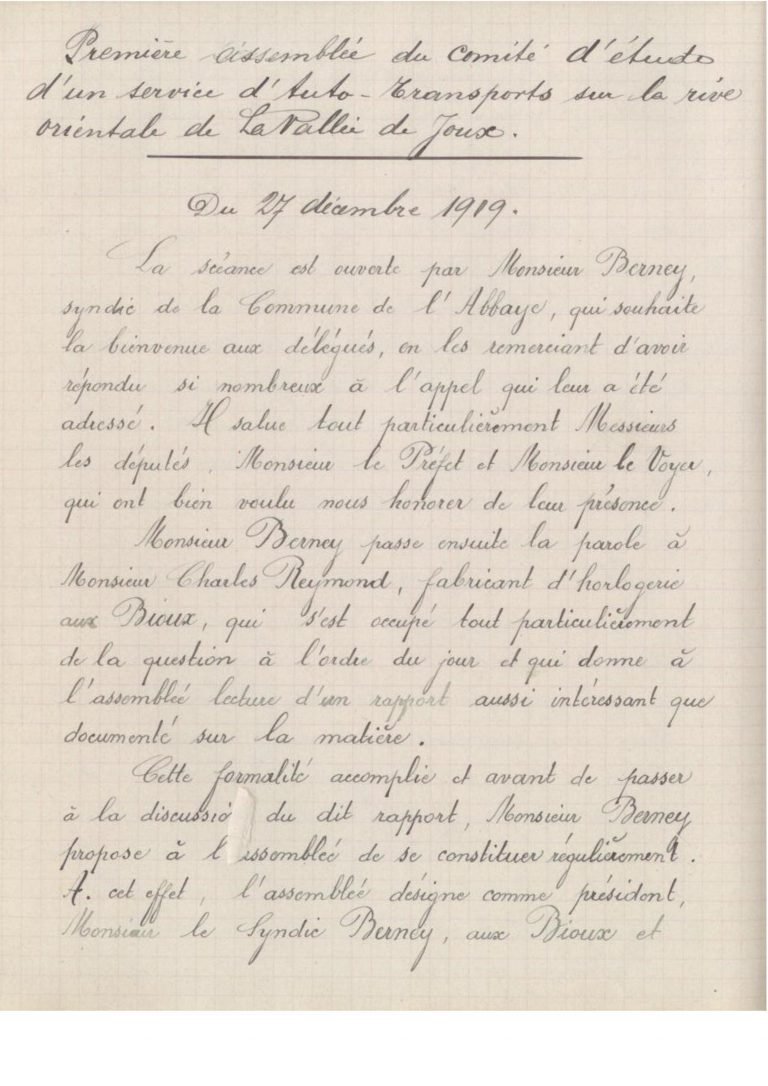 Première assemblée du comité d'étude
d'un service d'Auto-Transports sur la rive
orientale de La Vallée de Joux.
Du 27 décembre 1919.
La scéance est ouverte par Monsieur Berney,
syndic de la Commune de l'Abbaye, qui souhaite
la bienvenue aux délégués, en les remerciant d'avoir
répondu si nombreux à l'appel qui leur a été
adressé. Il salue tout particulièrement Messieurs
les députés, Monsieur le Préfet et Monsieur le Voyer,
qui ont bien voulu nous honorer de leur présence.
Monsieur Berney passe ensuite la parole à
Monsieur Charles Reymond, fabricant d'horlogerie
aux Bioux, qui s'est occupé tout particulièrement
de la question à l'ordre du jour et qui donne à
l'assemblée lecture d'un rapport aussi intéressant que
documenté sur la matière.
Cette formalité accomplie et avant de passer
à la discussio du dit rapport, Monsieur Berney
propose à l ssemblée de se constituer régulièrement.
A. cet effet, l'assemblée désigne comme président,
Monsieur le Syndic Berney, aux Bioux et